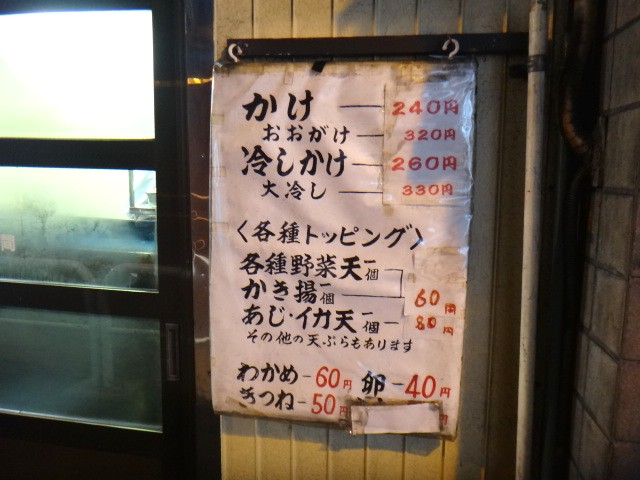 かけ 240円
おおがけ 320円
冷しかけ 260円
大冷し 330円
〈各種トッピング〉
各種野菜天一個
かき揚一個 60円
あじ・イカ天一個 80円
その他の天ぷらもあります
わかめ-60円 卵-40円
きつね-50円 円